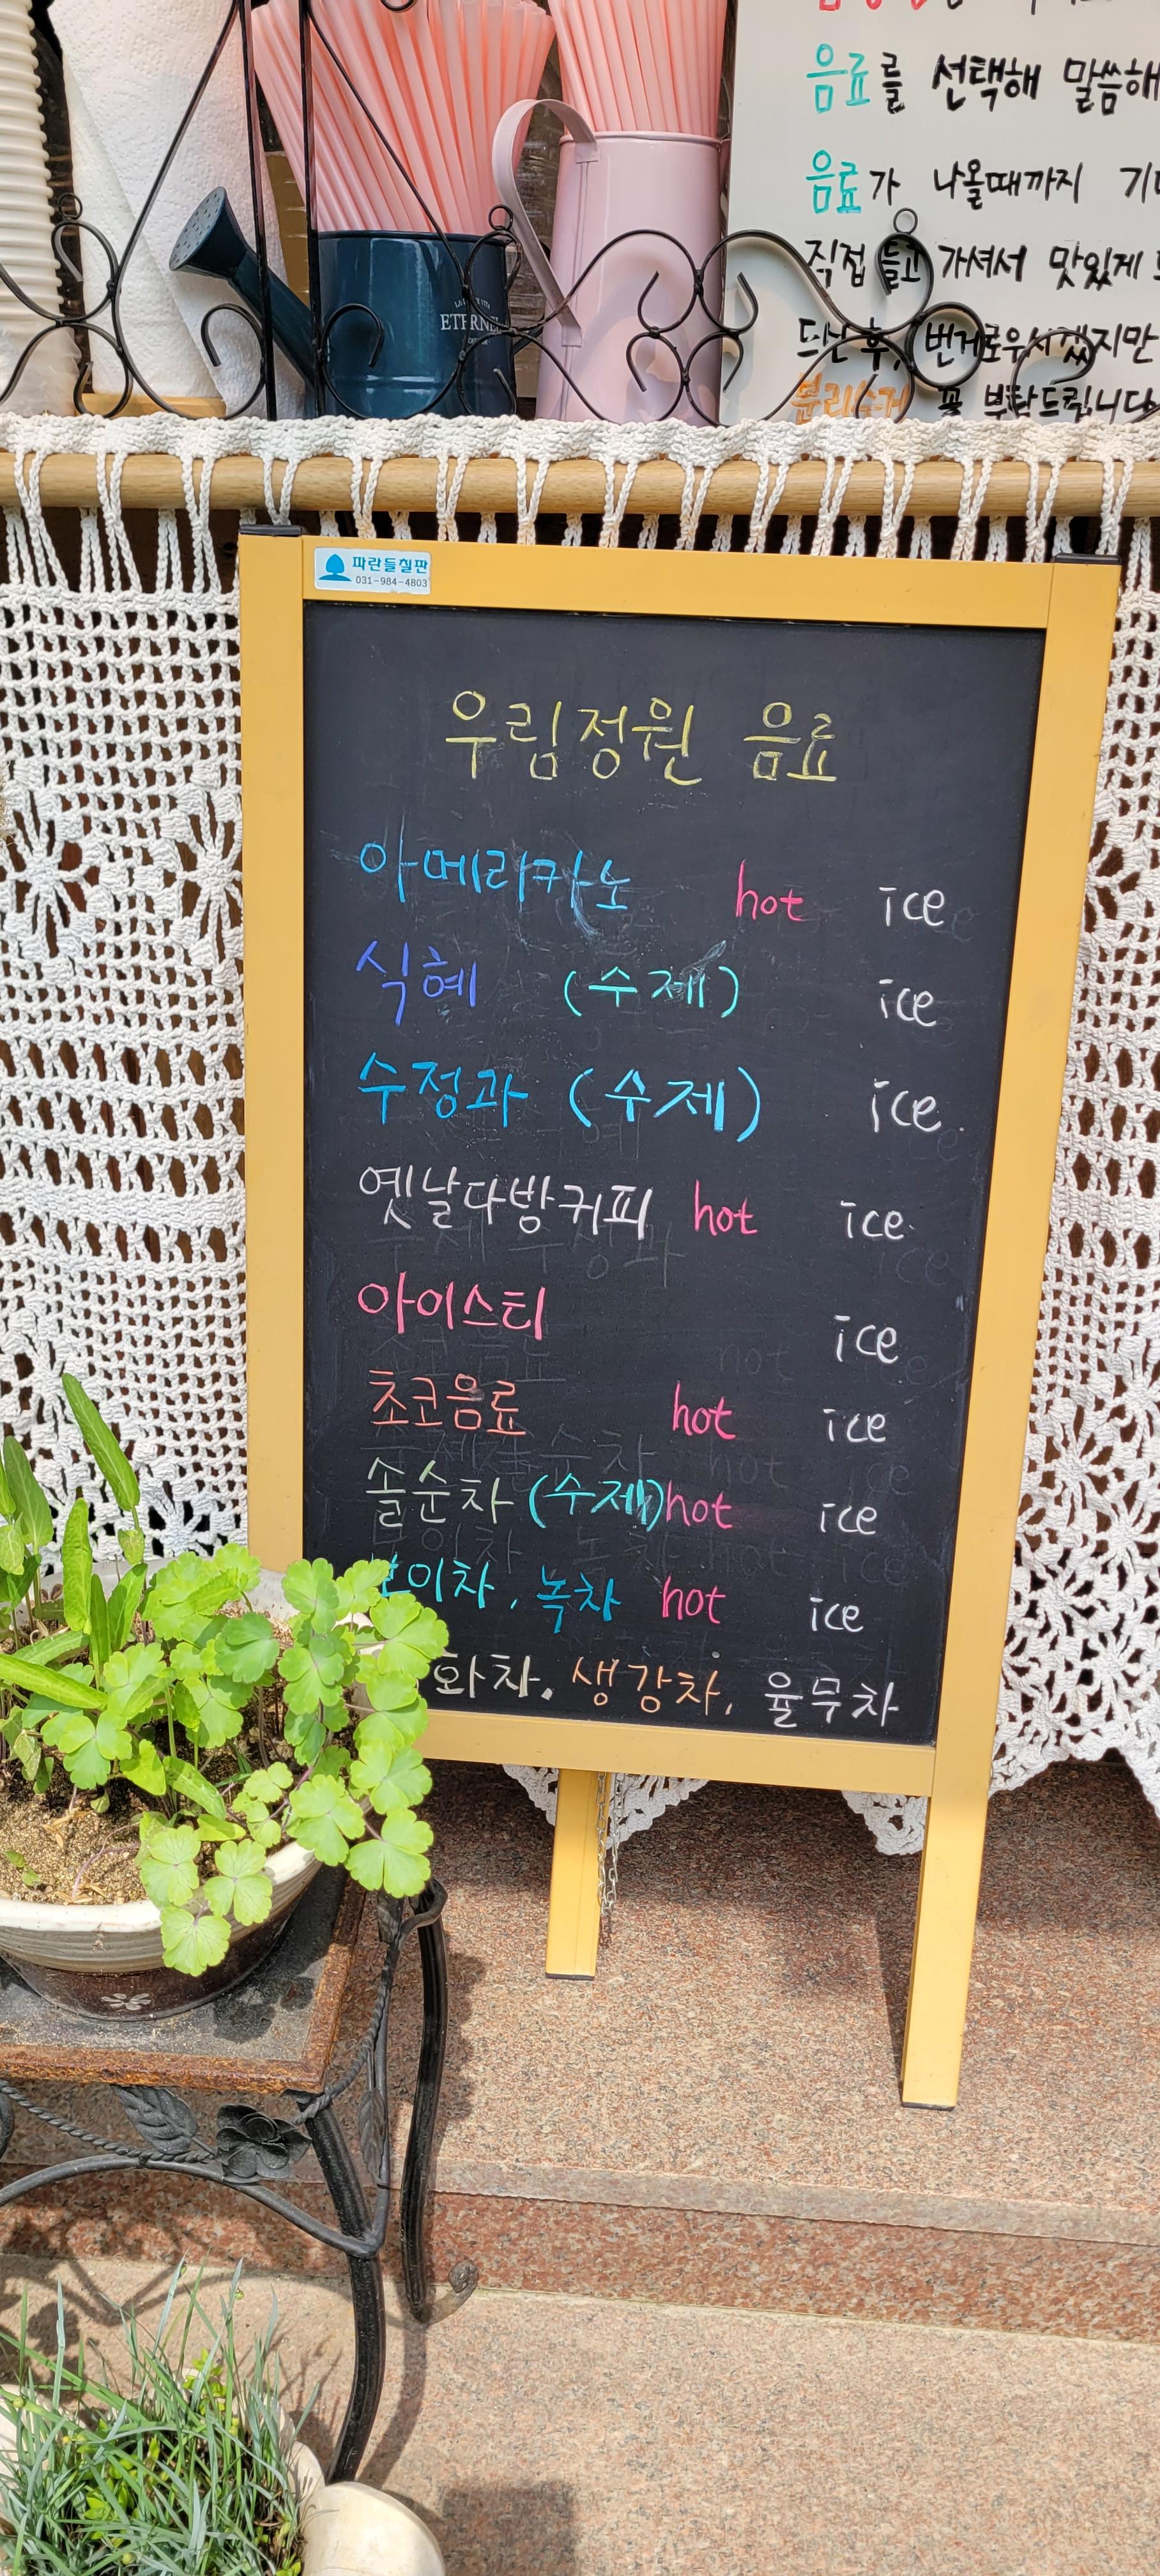 음료를 선택해 말씀해
음료가 나올때까지
직접 들고 가셔서 맛있게
드신 후, 번거로우시겠지만
분리수거 꼭 부탁드립니다
ETERNEL
파란들칠판
031-984-4803
우림정원 음료
아메리카노 hot ice
식혜 (수제) ice
수정과 (수제) ice
옛날다방커피 hot ice
아이스티 ice
초코음료 hot ice
솔순차 (수제) hot ice
보이차, 녹차 hot ice
화차, 생강차, 율무차